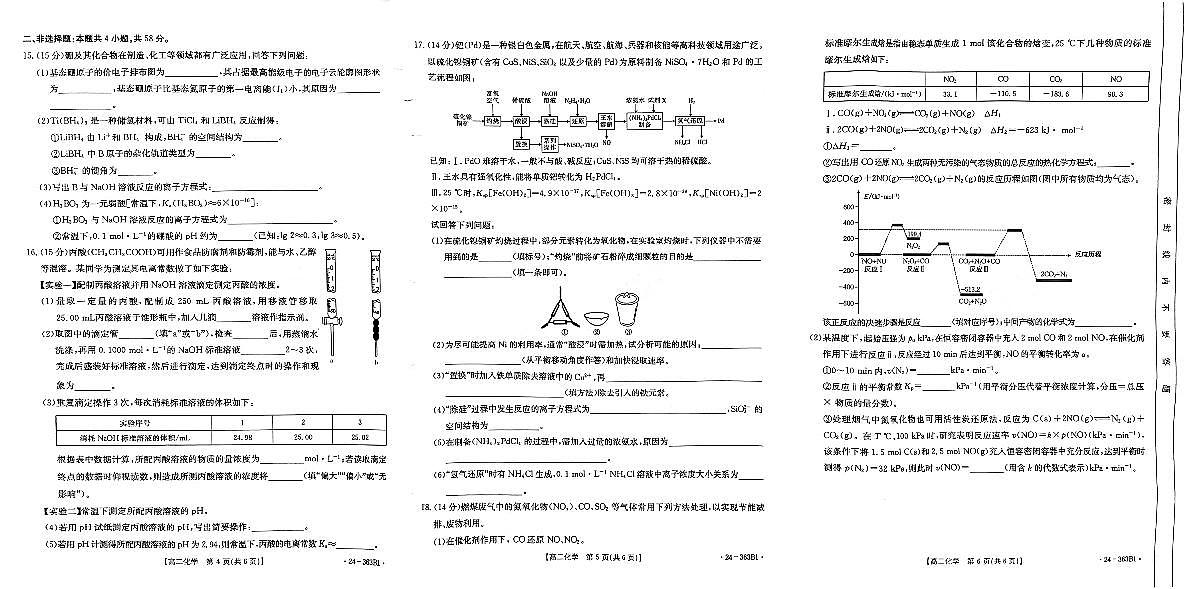 二、非选择题:本题共 4 小题,共 58 分。
15.(15 分)硼及其化合物在制造、化工等领域都有广泛应用,回答下列问题:
(1)基态硼原子的价电子排布图为________,其占据最高能级电子的电子云轮廓图形状
为________,基态硼原子比基态氮原子的第一电离能(I₁)小,其原因为________
________。
(2)Ti(BH₄)₃ 是一种储氢材料,可由 TiCl₄ 和 LiBH₄ 反应制得:
①LiBH₄ 由 Li⁺和 BH₄⁻ 构成,BH₄⁻ 的空间结构为________。
②LiBH₄ 中 B 原子的杂化轨道类型为________。
③BH₄⁻ 的键角为________。
(3)写出 B 与 NaOH 溶液反应的离子方程式:________。
(4)H₃BO₃ 为一元弱酸[常温下,Kₐ(H₃BO₃)≈6×10⁻¹⁰]:
①H₃BO₃ 与 NaOH 溶液反应的离子方程式为________。
②常温下,0.1 mol·L⁻¹的硼酸的 pH 约为________(已知:lg 2≈0.3,lg 3≈0.5)。
16.(15 分)丙酸(CH₃CH₂COOH)可用作食品防腐剂和防霉剂,能与水、乙醇
等混溶。某同学为测定其电离常数做了如下实验:
【实验一】配制丙酸溶液并用 NaOH 溶液滴定测定丙酸的浓度。
(1)量取一定量的丙酸,配制成 250 mL 丙酸溶液,用移液管移取
25.00 mL丙酸溶液于锥形瓶中,加入几滴________溶液作指示剂。
(2)取图中的滴定管________(填“a”或“b”),检查________后,用蒸馏水
洗涤,再用 0.1000 mol·L⁻¹的 NaOH 标准溶液________2~3次,
完成后盛装好标准溶液,然后进行滴定,达到滴定终点时的操作和现
象为________。
a
b
(3)重复滴定操作 3 次,每次消耗标准溶液的体积如下:
实验序号 1 2 3
消耗 NaOH 标准溶液的体积/mL 24.98 25.00 25.02
根据表中数据计算,所配丙酸溶液的物质的量浓度为________mol·L⁻¹;若读取滴定
终点的数据时仰视读数,则造成所测丙酸溶液的浓度将________(填“偏大”“偏小”或“无
影响”)。
【实验二】常温下测定所配丙酸溶液的 pH。
(4)若用 pH 试纸测定丙酸溶液的 pH,写出简要操作:________。
(5)若用 pH 计测得所配丙酸溶液的 pH 为 2.94,则常温下,丙酸的电离常数 Kₐ≈________。
【高二化学 第 4 页(共 6 页)】 ·24-363B1·
17.(14 分)钯(Pd)是一种银白色金属,在航天、航空、航海、兵器和核能等高科技领域用途广泛,
以硫化镍铜矿(含有 CuS、NiS、SiO₂ 以及少量的 Pd)为原料制备 NiSO₄·7H₂O 和 Pd 的工
艺流程如图:
富氧空气 稀硫酸 NaOH溶液 N₂H₄·H₂O 浓氨水 H₂
硫化镍铜矿 灼烧 酸浸 除硅 还原 王水溶解 (NH₄)₂PdCl₄制备 氢气还原 Pd
置换 系列操作 NiSO₄·7H₂O NO NH₄Cl HCl
已知:Ⅰ. PdO 难溶于水,一般不与酸、碱反应;CuS、NiS 均可溶于热的稀硫酸。
Ⅱ. 王水具有强氧化性,能将单质钯转化为 H₂PdCl₄。
Ⅲ. 25 ℃时,Kₛₚ[Fe(OH)₂]=4.9×10⁻¹⁷,Kₛₚ[Fe(OH)₃]=2.8×10⁻³⁹,Kₛₚ[Ni(OH)₂]=2
×10⁻¹⁵。
试回答下列问题:
(1)在硫化镍铜矿灼烧过程中,部分元素转化为氧化物,在实验室灼烧时,下列仪器中不需要
用到的是________(填标号);“灼烧”前将矿石粉碎成细颗粒的目的是________
________(填一条即可)。
① ② ③
(2)为尽可能提高 Ni 的利用率,通常“酸浸”时需加热,试分析可能的原因:________
________(从平衡移动角度作答)和加快浸取速率。
(3)“置换”时加入铁单质除去溶液中的 Cu²⁺,再________
________(填方法)除去引入的铁元素。
(4)“除硅”过程中发生反应的离子方程式为________,SiO₃²⁻ 的
空间结构为________。
(5)在制备(NH₄)₂PdCl₄ 的过程中,需加入过量的浓氨水,原因为________
________。
(6)“氢气还原”时有 NH₄Cl 生成,0.1 mol·L⁻¹ NH₄Cl 溶液中离子浓度大小关系为
________。
18.(14 分)燃煤废气中的氮氧化物(NOₓ)、CO、SO₂ 等气体常用下列方法处理,以实现节能减
排、废物利用。
(1)在催化剂作用下,CO 还原 NO、NO₂。
【高二化学 第 5 页(共 6 页)】 ·24-363B1·
标准摩尔生成焓是指由稳态单质生成 1 mol 该化合物的焓变,25 ℃下几种物质的标准
摩尔生成焓如下:
NO₂ CO CO₂ NO
标准摩尔生成焓/(kJ·mol⁻¹) 33.1 -110.5 -393.5 90.3
ⅰ. CO(g)+NO₂(g)⇌CO₂(g)+NO(g) ΔH₁
ⅱ. 2CO(g)+2NO(g)⇌2CO₂(g)+N₂(g) ΔH₂=-623 kJ·mol⁻¹
①ΔH₁=________。
②写出用 CO还原 NO₂ 生成两种无污染的气态物质的总反应的热化学方程式:________。
③2CO(g)+2NO(g)⇌2CO₂(g)+N₂(g)的反应历程如图(图中所有物质均为气态):
E/(kJ·mol⁻¹)
600
400
200
0
-200
-400
-600
199.4
N₂O₂
NO+NO
反应Ⅰ
N₂O₂+CO
反应Ⅱ
-513.2
CO₂+N₂O
CO₂+N₂O+CO
反应Ⅲ
2CO₂+N₂
反应历程
该正反应的决速步骤是反应________(填对应序号);中间产物的化学式为________。
(2)某温度下,起始压强为 p₀ kPa,在恒容密闭容器中充入 2 mol CO 和 2 mol NO,在催化剂
作用下进行反应ⅱ,反应经过 10 min 后达到平衡,NO 的平衡转化率为 α。
①0~10 min 内,v(N₂)=________kPa·min⁻¹。
②反应ⅱ的平衡常数 Kₚ=________kPa⁻¹(用平衡分压代替平衡浓度计算,分压=总压
×物质的量分数)。
③处理烟气中氮氧化物也可用活性炭还原法,反应为 C(s)+2NO(g)⇌N₂(g)+
CO₂(g)。在 T ℃、100 kPa 时,研究表明反应速率 v(NO)=k×p(NO)(kPa·min⁻¹),
该条件下将 1.5 mol C(s)和2.5 mol NO(g)充入恒容密闭容器中充分反应,达到平衡时
测得 p(N₂)=32 kPa,则此时 v(NO)=________(用含 k 的代数式表示)kPa·min⁻¹。
【高二化学 第 6 页(共 6 页)】 ·24-363B1·
密 封 线 内 不 要 答 题